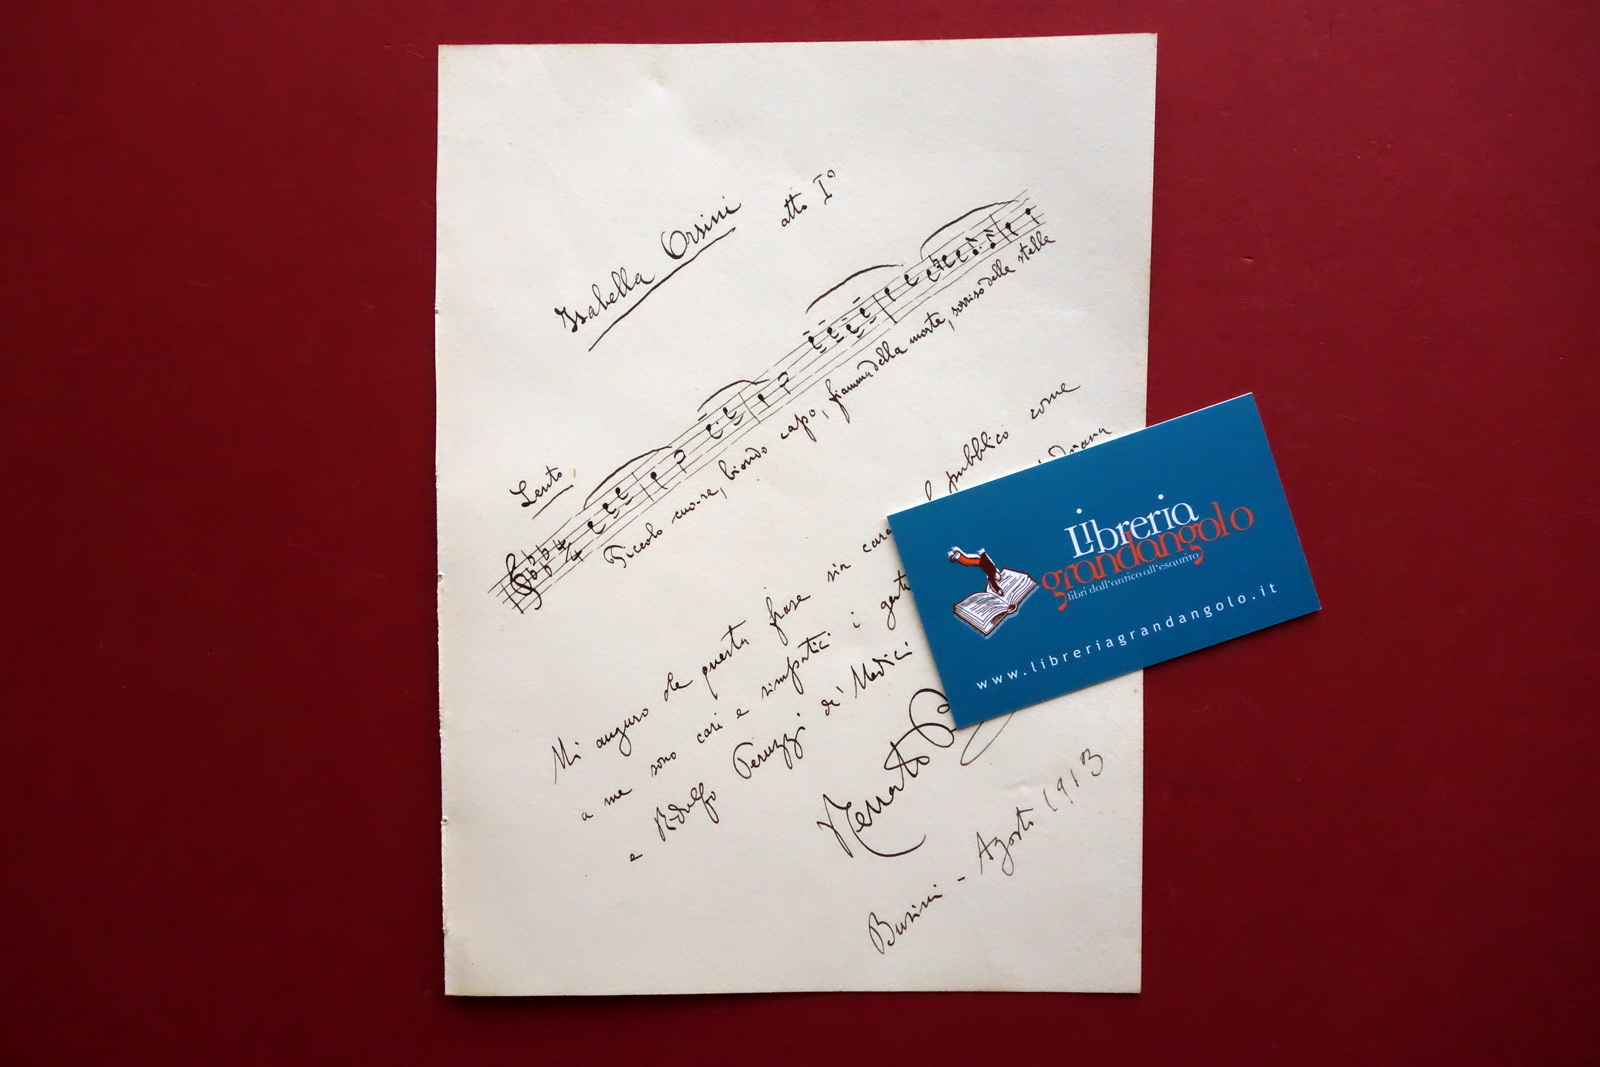 Isabella Orsini atto Iº
Lento
4
4
Piccolo cuo-re, biondo capo, fiamma della morte, sorriso delle stelle
Mi auguro che questa frase sia cara pubblico come
a me sono cari e simpatici i
e Ridolfo Peruzzi de' Medici
Renato
Busini - Agosto 1913
Libreria
grandangolo
libri dall'antico all'esaurito
www.libreriagrandangolo.it